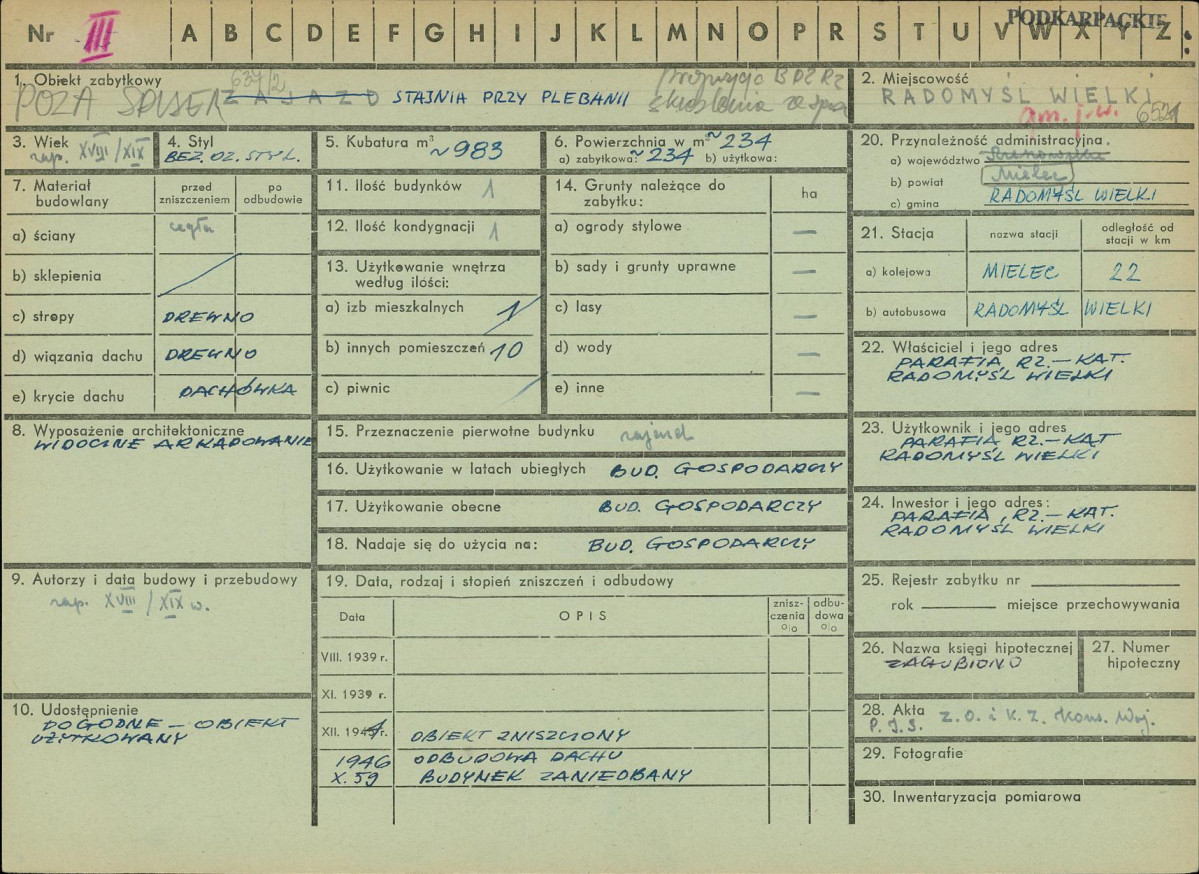 PODKARPACKIE
Nr III A B C D E F G H I J K L M N O P R S T U V W X Y Z
1. Obiekt zabytkowy 637/2 propozycja BDZ Rz
POZA SPISEM ZAJAZD STAJNIA PRZY PLEBANII skreślenia ze
2. Miejscowość
RADOMYŚL WIELKI
gm. j.w. 6521
3. Wiek
zap. XVIII/XIX
4. Styl
BEZ. OZ. STYL.
5. Kubatura m³
~983
6. Powierzchnia w m² ~234
a) zabytkowa: ~234 b) użytkowa:
7. Materiał budowlany
przed zniszczeniem
po odbudowie
a) ściany cegła
b) sklepienia
c) stropy DREWNO
d) wiązania dachu DREWNO
e) krycie dachu DACHÓWKA
8. Wyposażenie architektoniczne
WIDOCZNE ARKADOWANIE
9. Autorzy i data budowy i przebudowy
zap. XVIII/XIX w.
10. Udostępnienie
DOGODNE – OBIEKT
UŻYTKOWANY
11. Ilość budynków 1
12. Ilość kondygnacji 1
13. Użytkowanie wnętrza
według ilości:
a) izb mieszkalnych 1
b) innych pomieszczeń 10
c) piwnic
14. Grunty należące do
zabytku:
ha
a) ogrody stylowe —
b) sady i grunty uprawne —
c) lasy —
d) wody —
e) inne —
15. Przeznaczenie pierwotne budynku zajazd
16. Użytkowanie w latach ubiegłych BUD. GOSPODARCZY
17. Użytkowanie obecne BUD. GOSPODARCZY
18. Nadaje się do użycia na: BUD. GOSPODARCZY
19. Data, rodzaj i stopień zniszczeń i odbudowy
Data
OPIS
znisz-
czenia
o/o
odbu-
dowa
o/o
VIII. 1939 r.
XI. 1939 r.
XII. 1944 r. OBIEKT ZNISZCZONY
1946 ODBUDOWA DACHU
X. 59 BUDYNEK ZANIEDBANY
20. Przynależność administracyjna.
a) województwo
b) powiat Mielec
c) gmina RADOMYŚL WIELKI
21. Stacja
nazwa stacji
odległość od
stacji w km
a) kolejowa MIELEC 22
b) autobusowa RADOMYŚL WIELKI
22. Właściciel i jego adres
PARAFIA RZ.–KAT.
RADOMYŚL WIELKI
23. Użytkownik i jego adres
PARAFIA RZ.–KAT
RADOMYŚL WIELKI
24. Inwestor i jego adres:
PARAFIA RZ.–KAT.
RADOMYŚL WIELKI
25. Rejestr zabytku nr
rok miejsce przechowywania
26. Nazwa księgi hipotecznej
ZAGUBIONO
27. Numer
hipoteczny
28. Akta
P.I.S. Z.O. i K.Z. Kons. Woj.
29. Fotografie
30. Inwentaryzacja pomiarowa